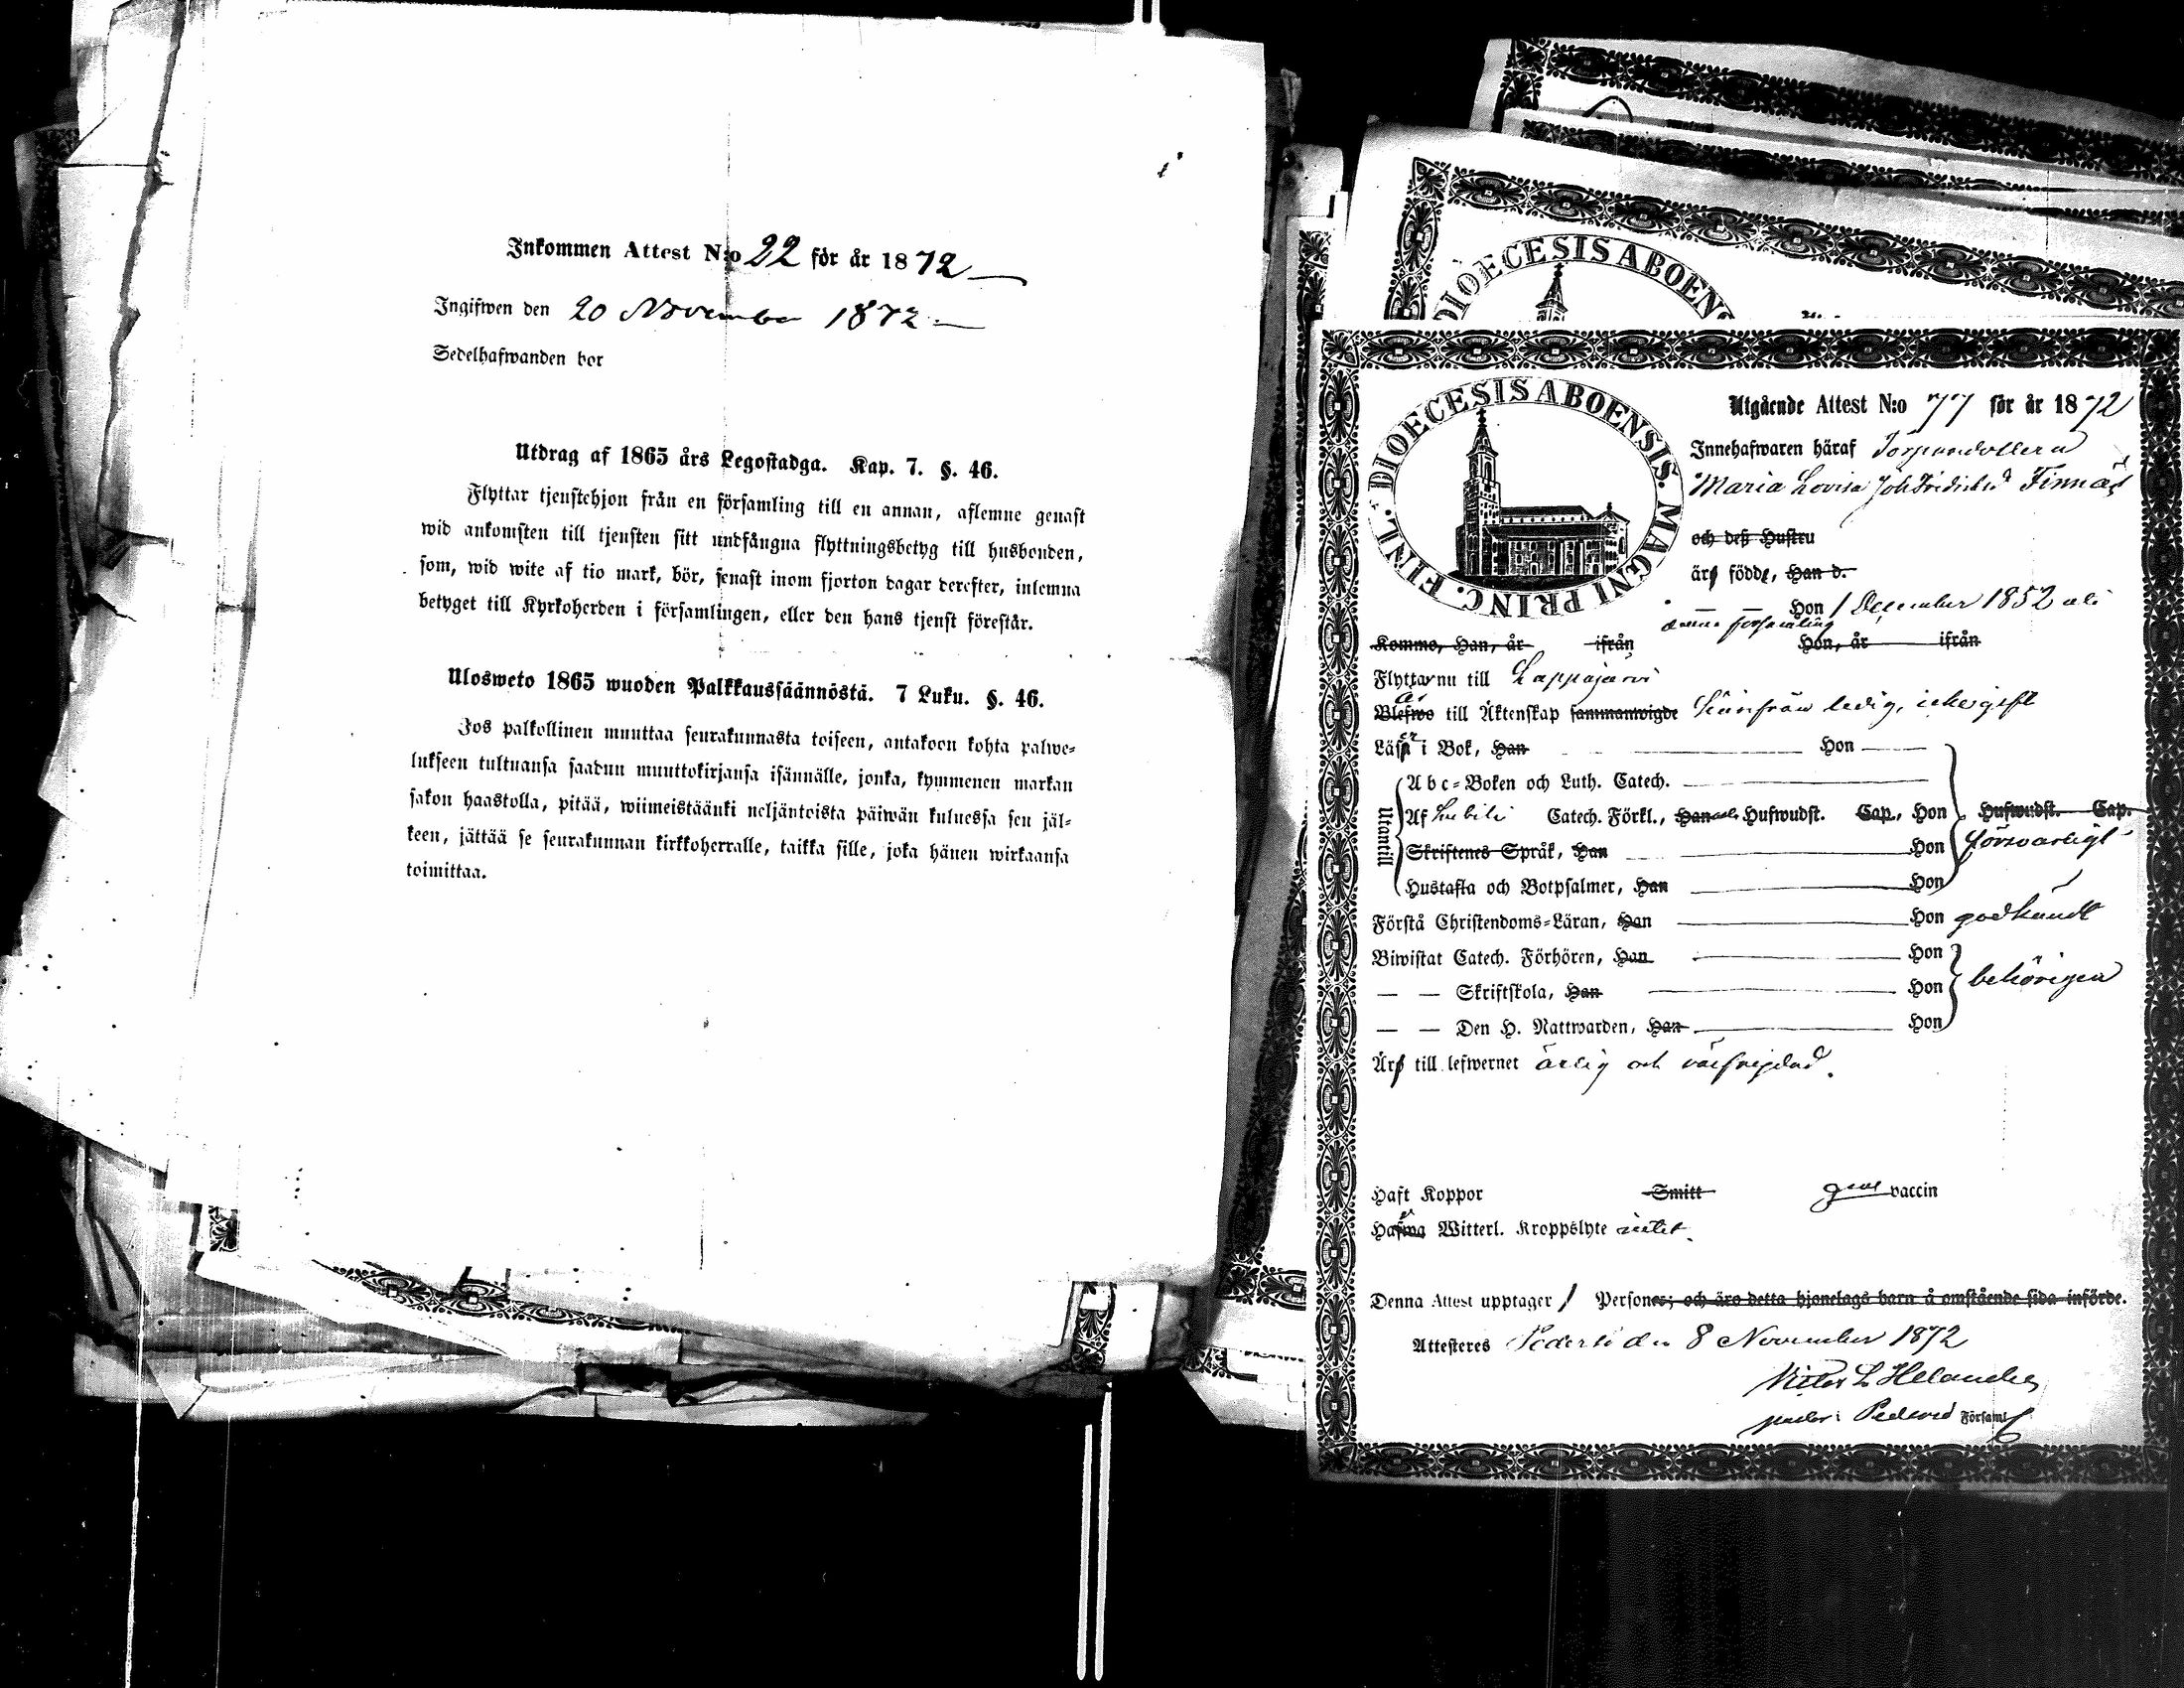 Inkommen Attest N:o 22 för år 1872
Ingifwen den 20 November 1872
Sedelhafwanden bor
Utdrag af 1865 års Legostadga. Kap. 7. §. 46.
Flyttar tjenstehjon från en församling till en annan, aflemne genast
wid ankomsten till tjensten sitt undfångna flyttningsbetyg till husbonden,
som, wid wite af tio mark, bör, senast inom fjorton dagar derefter, inlemna
betyget till Kyrkoherden i församlingen, eller den hans tjenst förestår.
Ulosweto 1865 wuoden Palkkaussäännöstä. 7 Luku. §. 46.
Jos palkollinen muuttaa seurakunnasta toiseen, antakoon kohta palwe-
lukseen tultuansa saadun muuttokirjansa isännälle, jonka, kymmenen markan
sakon haastolla, pitää, wiimeistäänki neljäntoista päiwän kuluessa sen jäl-
keen, jättää se seurakunnan kirkkoherralle, taikka sille, joka hänen wirkaansa
toimittaa.
DIOECESIS ABOEN
DIOECESIS ABOENSIS. MAGNI PRINC. FINL.
Utgående Attest N:o 77 för år 1872
Innehafwaren häraf
Maria Lovisa Joh Fridrichsd Finnäs
och deß Hustru
är född, Han d.
Hon 1 December 1852
denna församling
Komme, Han, år ifrån Hon, år ifrån
Flyttar nu till Lappajärvi
Är
Blefwo till Äktenskap sammanwigde ledig, icke gift
Läser i Bok, Han Hon
Abc-Boken och Luth. Catech.
Utantill
Af Catech. Förkl., Han Hufwudst. Cap., Hon Hufwudst. Cap.
Skriftenes Språk, Han Hon försvarligt
Hustafla och Botpsalmer, Han Hon
Förstå Christendoms-Läran, Han Hon godkändt
Biwistat Catech. Förhören, Han Hon
— — Skriftskola, Han Hon behörigen
— — Den H. Nattwarden, Han Hon
Är till lefwernet ärlig och välfrejdad.
Haft Koppor Smitt vaccin
Hafwa Witterl. Kroppslyte intet.
Denna Attest upptager 1 Persones; och äro detta hjonelags barn å omstående sida införde.
Attesteres den 8 November 1872
Victor L Helander
i Församl